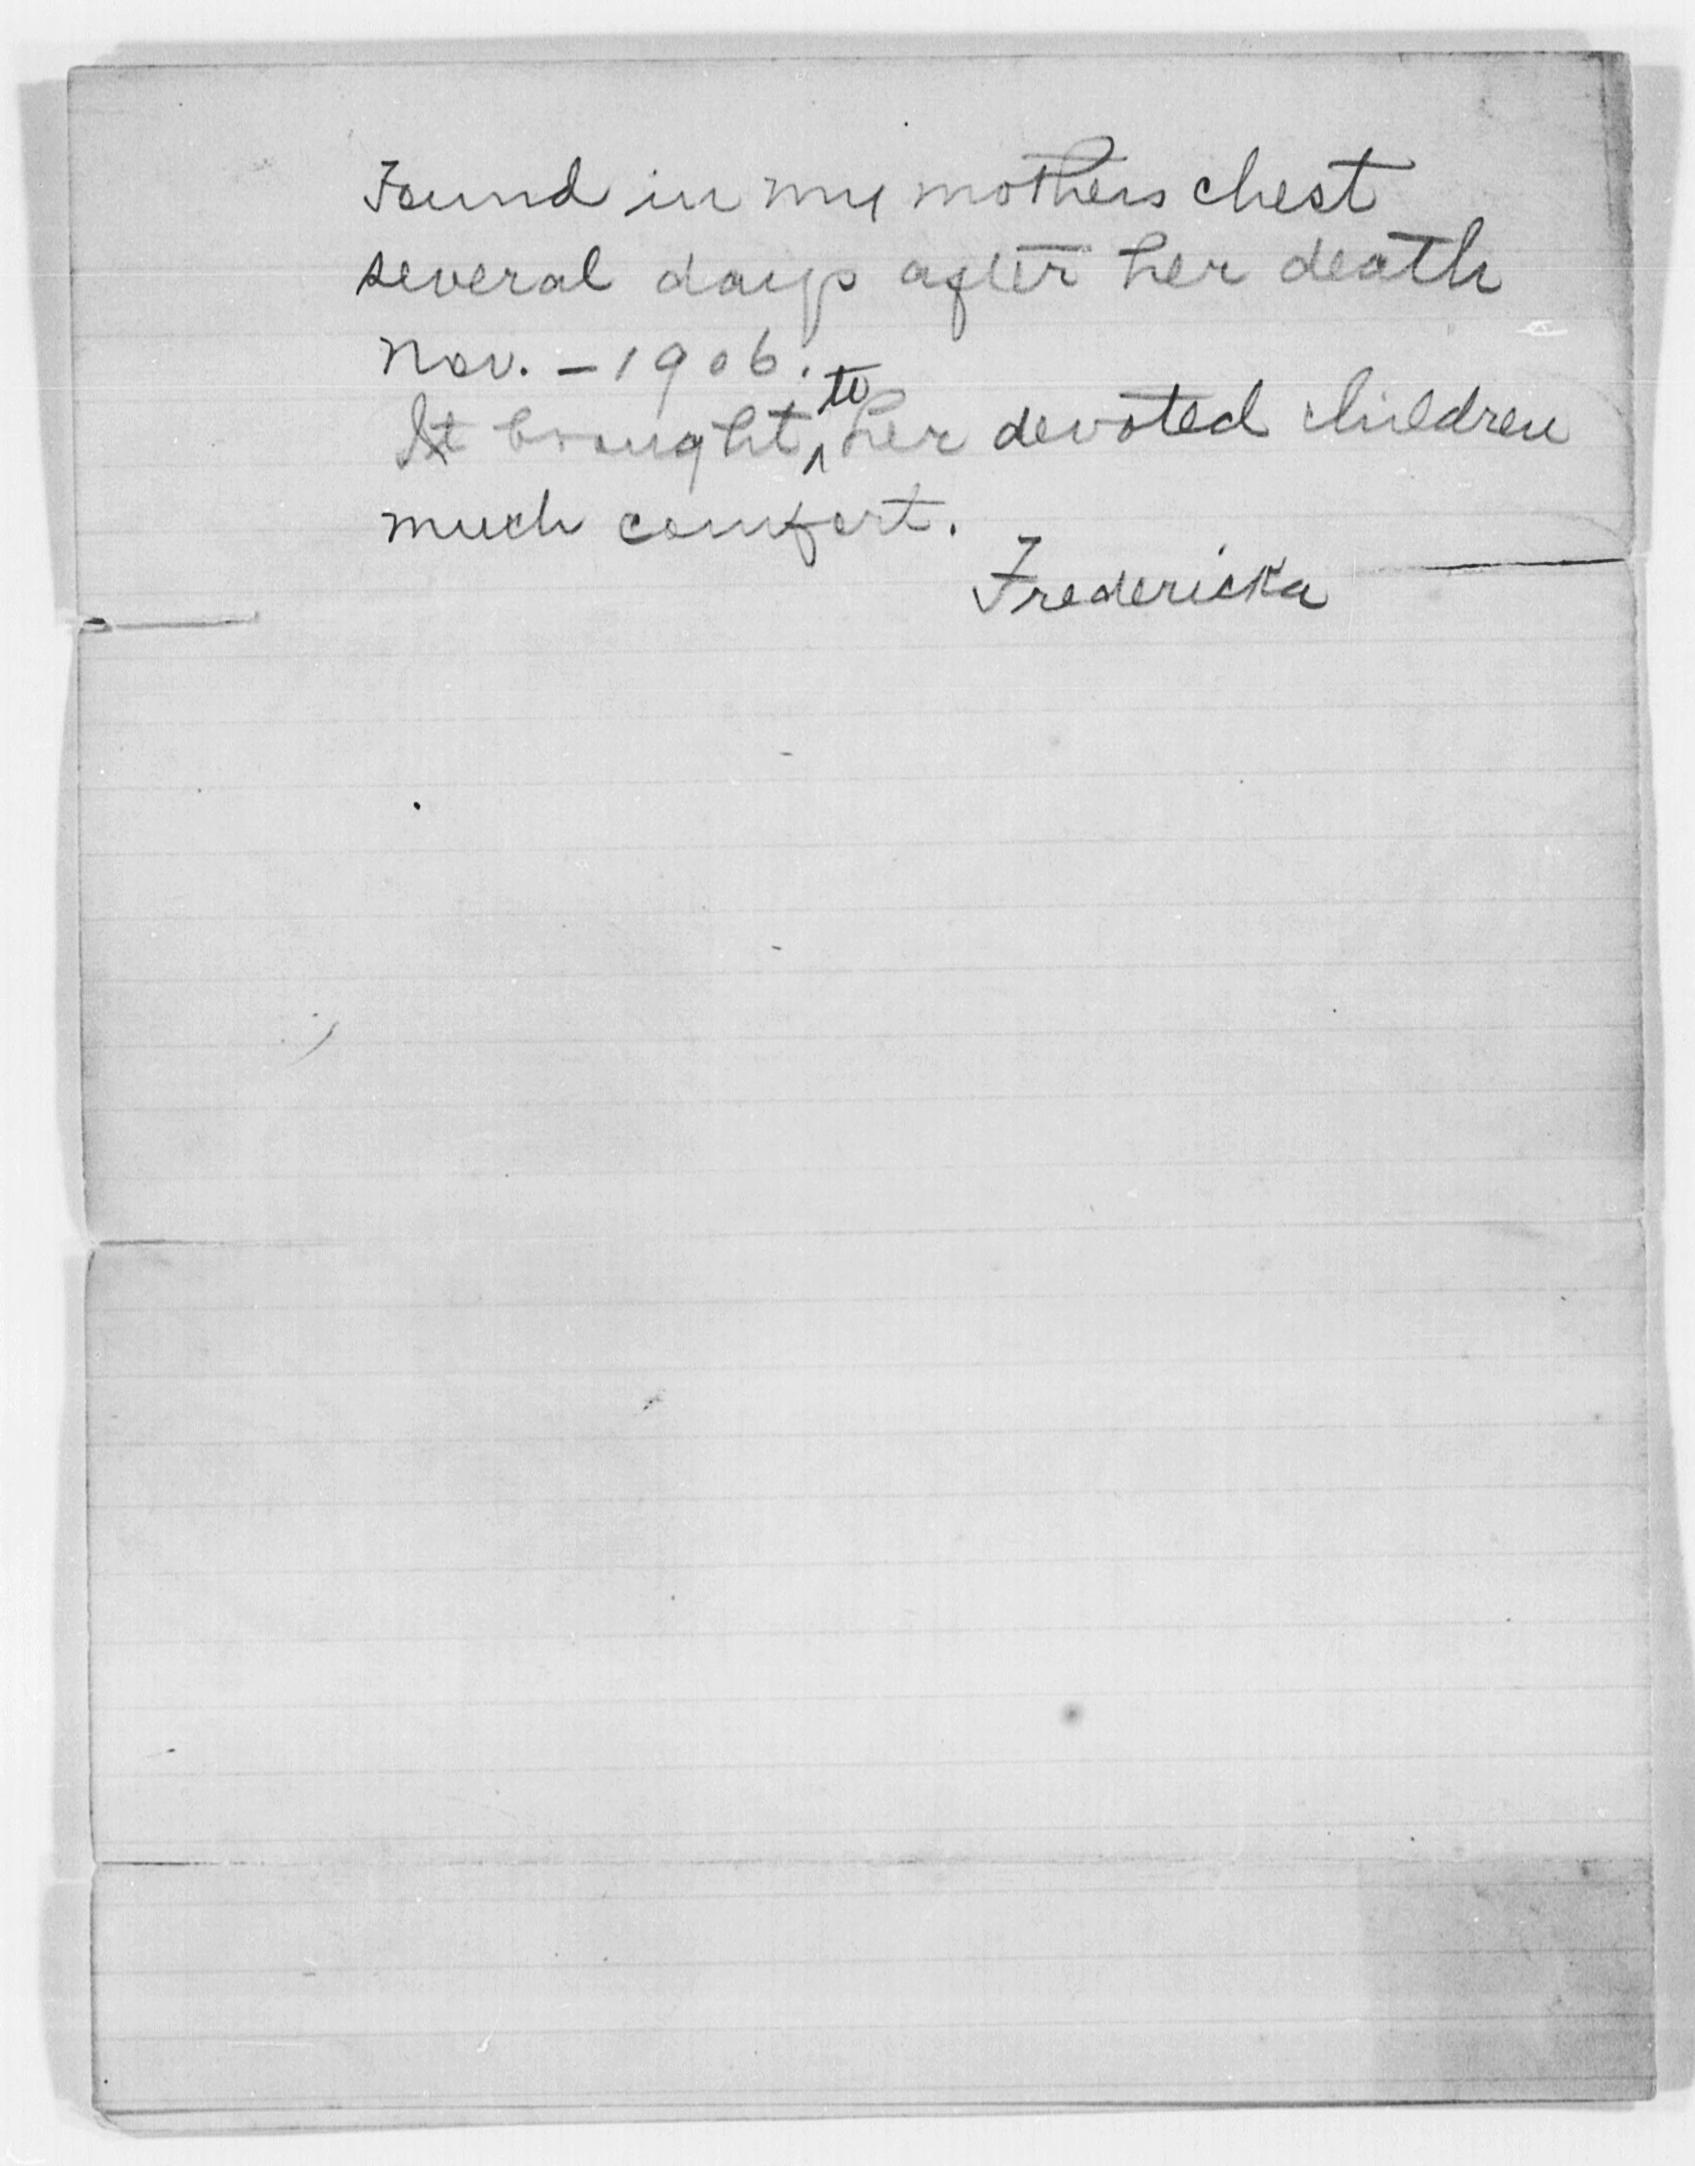 Found in my mothers chest
several days after her death
Nov. – 1906.
It brought ^to her devoted children
much comfort.
Fredericka